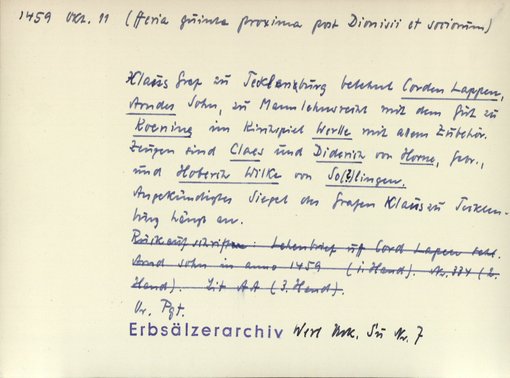 1459 Okt. 11 (fferia quinta proxima post Dionisii et sociorum)
Klaus Graf zu Tecklenburg belehnt Corden Lappen,
Arndes Sohn, zu Mannlehnsrecht mit dem Gut zu
Koening im Kirchspiel Werlle mit alem Zubehör.
Zeugen sind Claes und Diderich von Horne, Gebr.,
und Hoberch Wilke von So(?)lingen.
Angekündigtes Siegel des Grafen Klaus zu Tecklen-
burg hängt an.
Rückaufschriften: Lehenbrief uff Cord Lapen sehl.
Arnd sohn in anno 1459 (1. Hand). Nr. 334 (2.
Hand). Lit AA (3. Hand).
Or. Pgt.
Erbsälzerarchiv Werl Urk. Su Nr. 7